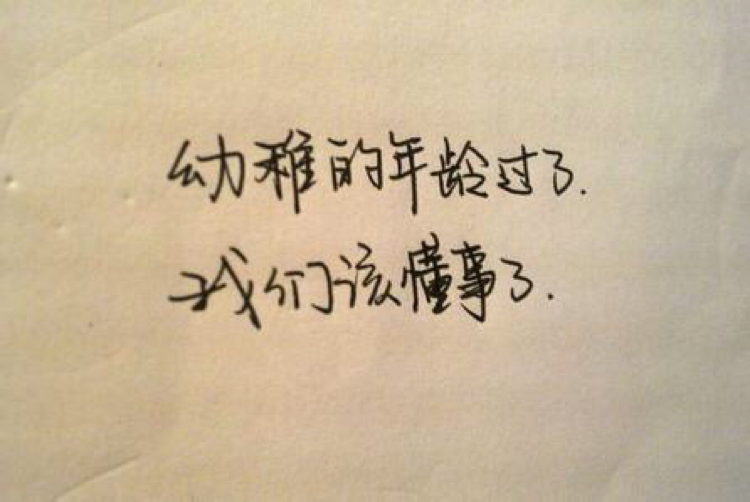 幼稚的年龄过了.
我们该懂事了.